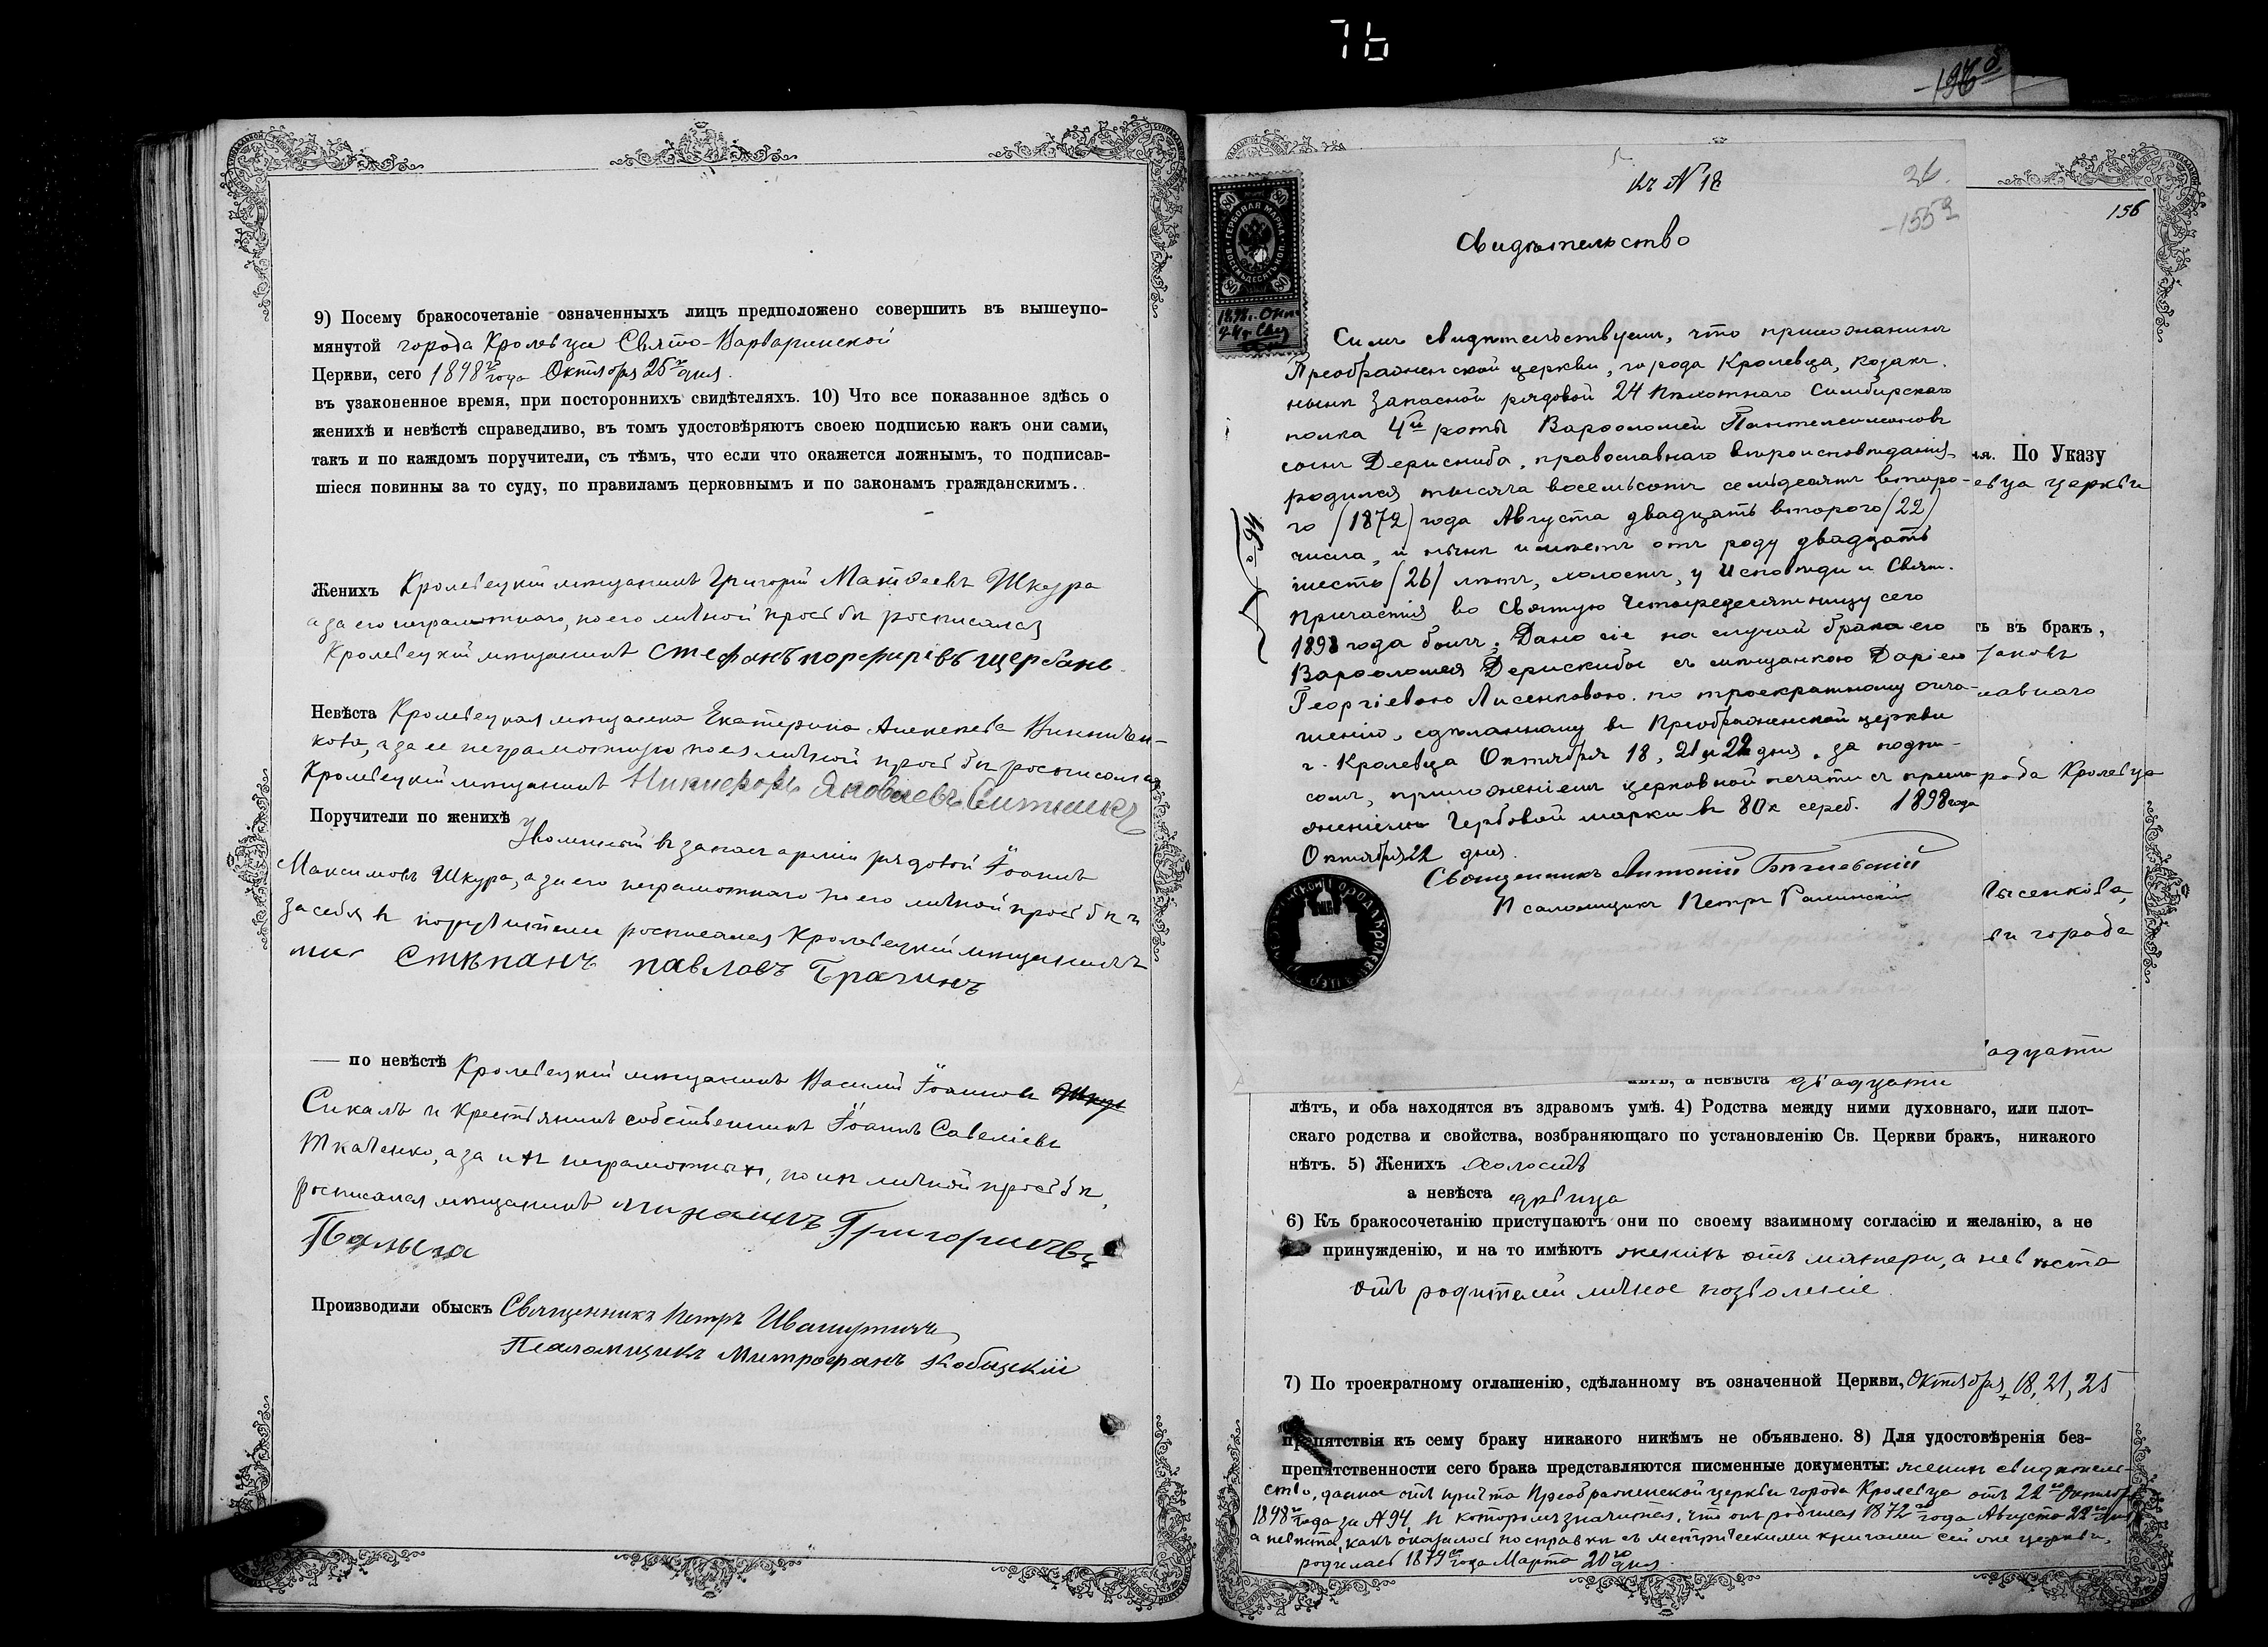 76
9) Посему бракосочетаніе означенныхъ лицъ предположено совершить въ вышеупо-
мянутой города Кролевца Свято-Варваринской
Церкви, сего 1898го года Октября 25го дня.
въ узаконенное время, при постороннихъ свидѣтеляхъ. 10) Что все показанное здѣсь о
женихѣ и невѣстѣ справедливо, въ томъ удостовѣряютъ своею подписью какъ они сами,
такъ и по каждомъ поручители, съ тѣмъ, что если что окажется ложнымъ, то подписав-
шіеся повинны за то суду, по правиламъ церковнымъ и по законамъ гражданскимъ.
Женихъ Кролевецкій мѣщанинъ Григорій Матѳеевъ Шкура
а за его неграмотнаго, по его личной просьбѣ росписался
Кролевецкій мѣщанинъ Стефанъ порфирівъ щербань
Невѣста Кролевецкая мѣщанка Екатерина Алексѣева
кова, а за ее неграмотную по ея личной просьбѣ росписался
Кролевецкій мѣщанинъ Никифоръ Яковлевъ
Поручители по женихѣ
Уволенный въ запасъ арміи рядовой Іоаннъ
Максимовъ Шкура, а за его неграмотнаго по его личной просьбѣ и
за себя въ поручители росписался Кролевецкій мѣщанинъ
Стѣпанъ павловъ Брагинъ
— по невѣстѣ Кролевецкій мѣщанинъ Василій Іоанновъ
Сикалъ и Крестьянинъ собственникъ Іоаннъ Савеліевъ
Ткаченко, а за ихъ неграмотныхъ, по ихъ личной просьбѣ,
росписался мѣщанинъ михаилъ Григориевъ
Производили обыскъ Священникъ Петръ
Псаломщикъ Митрофанъ Кобицкій
156
26.
155
къ № 18
Свидѣтельство
ГЕРБОВАЯ МАРКА
80
Симъ свидѣтельствуемъ, что прихожанинъ
Преображенской церкви, города Кролевца, козакъ.
нынѣ запасной рядовой 24 Пѣхотнаго Симбирскаго
полка 4й роты Варѳоломей Пантелеимоновъ
сынъ Дерискиба, православнаго вѣроисповѣданія,
родился тысяча восемьсотъ семьдесятъ второ-
го (1872) года Августа двадцать второго (22)
числа, и нынѣ имѣетъ отъ роду двадцать
шесть (26) лѣтъ, холостъ, у Исповѣди и Свят.
Причастія во Святую Четыредесятницу сего
1898 года былъ; Дано сіе на случай брака его
Варѳоломея Дерискибы съ мѣщанкою Даріею
Георгіевою Лисенковою. по троекратному огла-
шенію, сдѣланному въ Преображенской церкви
г. Кролевца Октября 18, 21 и 22 дня, за подпи-
сомъ, приложеніемъ церковной печати съ прило-
женіемъ Гербовой марки въ 80 к сереб. 1898 года
Октября 22 дня.
Священникъ Антоній
Псаломщикъ Петръ
ія. По Указу
евца церкви
ть въ бракъ,
лавнаго
рода Кролевца
ысенкова,
ви города
адцати
лѣтъ, а невѣста двадцати
лѣтъ, и оба находятся въ здравомъ умѣ. 4) Родства между ними духовнаго, или плот-
скаго родства и свойства, возбраняющаго по установленію Св. Церкви бракъ, никакого
нѣтъ. 5) Женихъ холостъ
а невѣста дѣвица
6) Къ бракосочетанію приступаютъ они по своему взаимному согласію и желанію, а не
принужденію, и на то имѣютъ женихъ отъ матери, а невѣста
отъ родителей личное позволеніе.
7) По троекратному оглашенію, сдѣланному въ означенной Церкви, Октября 18, 21, 25
препятствія къ сему браку никакого никѣмъ не объявлено. 8) Для удостовѣренія без-
препятственности сего брака представляются писменные документы: женихъ свидѣтель-
ство, данное отъ причта Преображенской церкви города Кролевца отъ 22го Октября
1898го года за № 94, въ которомъ значится, что онъ родился 1872го года Августа 22го дня
а невѣста, какъ оказалось по справкѣ съ метрическими книгами сей же церкви,
родилась 1879го года Марта 20го дня.